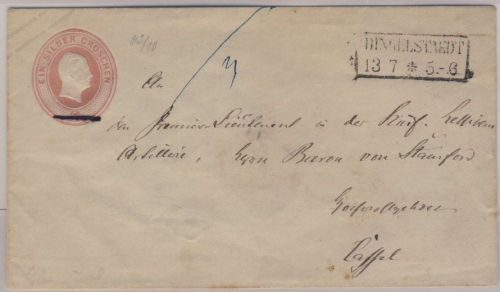 EIN SILBER GROSCHEN
DINGELSTAEDT
13 7 * 5-6
An
den Premier-Lieutenant in der Kurf. Hessischen
Artillerie, Herrn Baron von
Cassel